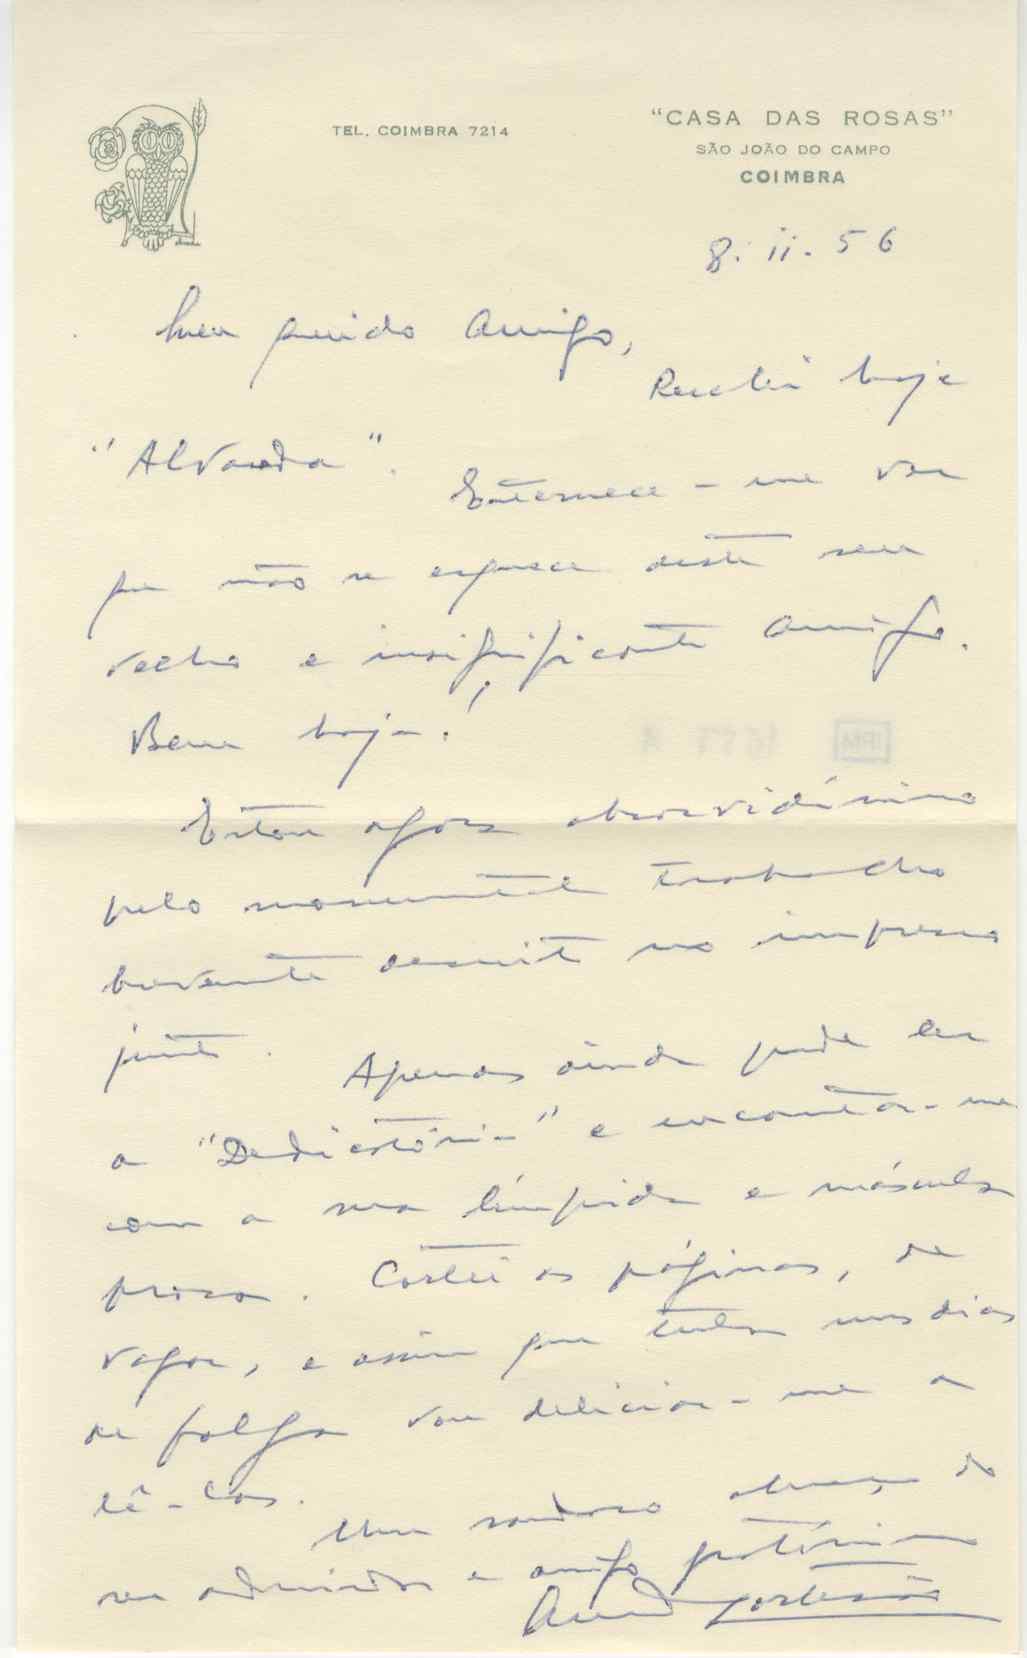 TEL. COIMBRA 7214
"CASA DAS ROSAS"
SÃO JOÃO DO CAMPO
COIMBRA
8. ii. 56
Meu querido Amigo,
Recebi hoje
"Alvorada". Enternece-me ver
que não se esquece deste seu
velho e insignificante amigo.
Bem haja!
Estou agora absorvidíssimo
pelo monumental trabalho
brevemente descrito no impresso
junto. Apenas ainda pude ler
a "Dedicatória" e encantar-me
com a sua límpida e máscula
prosa. Cortei as páginas, de
vagar, e assim que tenha uns dias
de folga vou deliciar-me a
lê-las.
Um saudoso abraço do
seu admirador e amigo
Cortesão